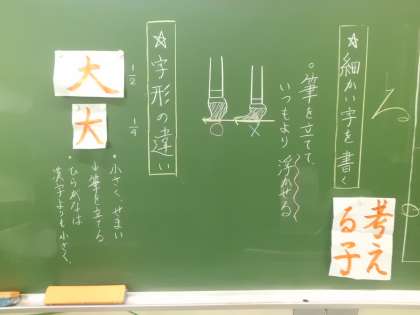 ☆細かい字を書く
考え
る子
。筆を立てて、
いつもより浮かせる
○
×
☆字形の違い
1/2
大
1/4
大
・小さく、せまい
→筆を立てる
・ひらがなは
漢字よりも小さく、